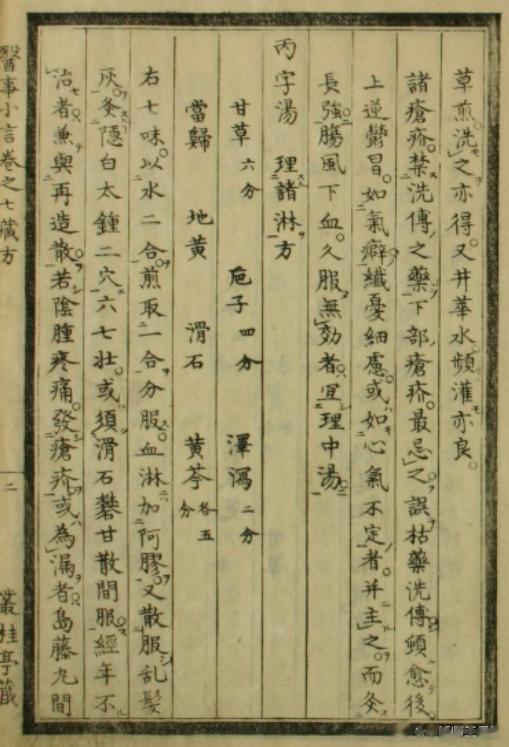 草煎洗之亦得又井華水頻灌亦良
諸瘡疥禁洗傅之藥下部瘡疥最忌之誤枯藥洗傅頓愈後
上逆鬱冒如氣癖纖憂細慮或如心氣不定者并主之而灸
長強腸風下血久服無効者宜理中湯
丙字湯　理諸淋方
甘草六分　梔子四分　澤瀉二分
當歸　地黄　滑石　黄芩各五分
右七味以水二合煎取一合分服血淋加阿膠又散服乱髪
灰灸隱白太鍾二穴六七壮或須滑石礬甘散間服經年不
治者兼與再造散若陰腫疼痛發瘡疥或為漏者島藤九間
醫事小言卷之七藏方　二　叢桂亭藏